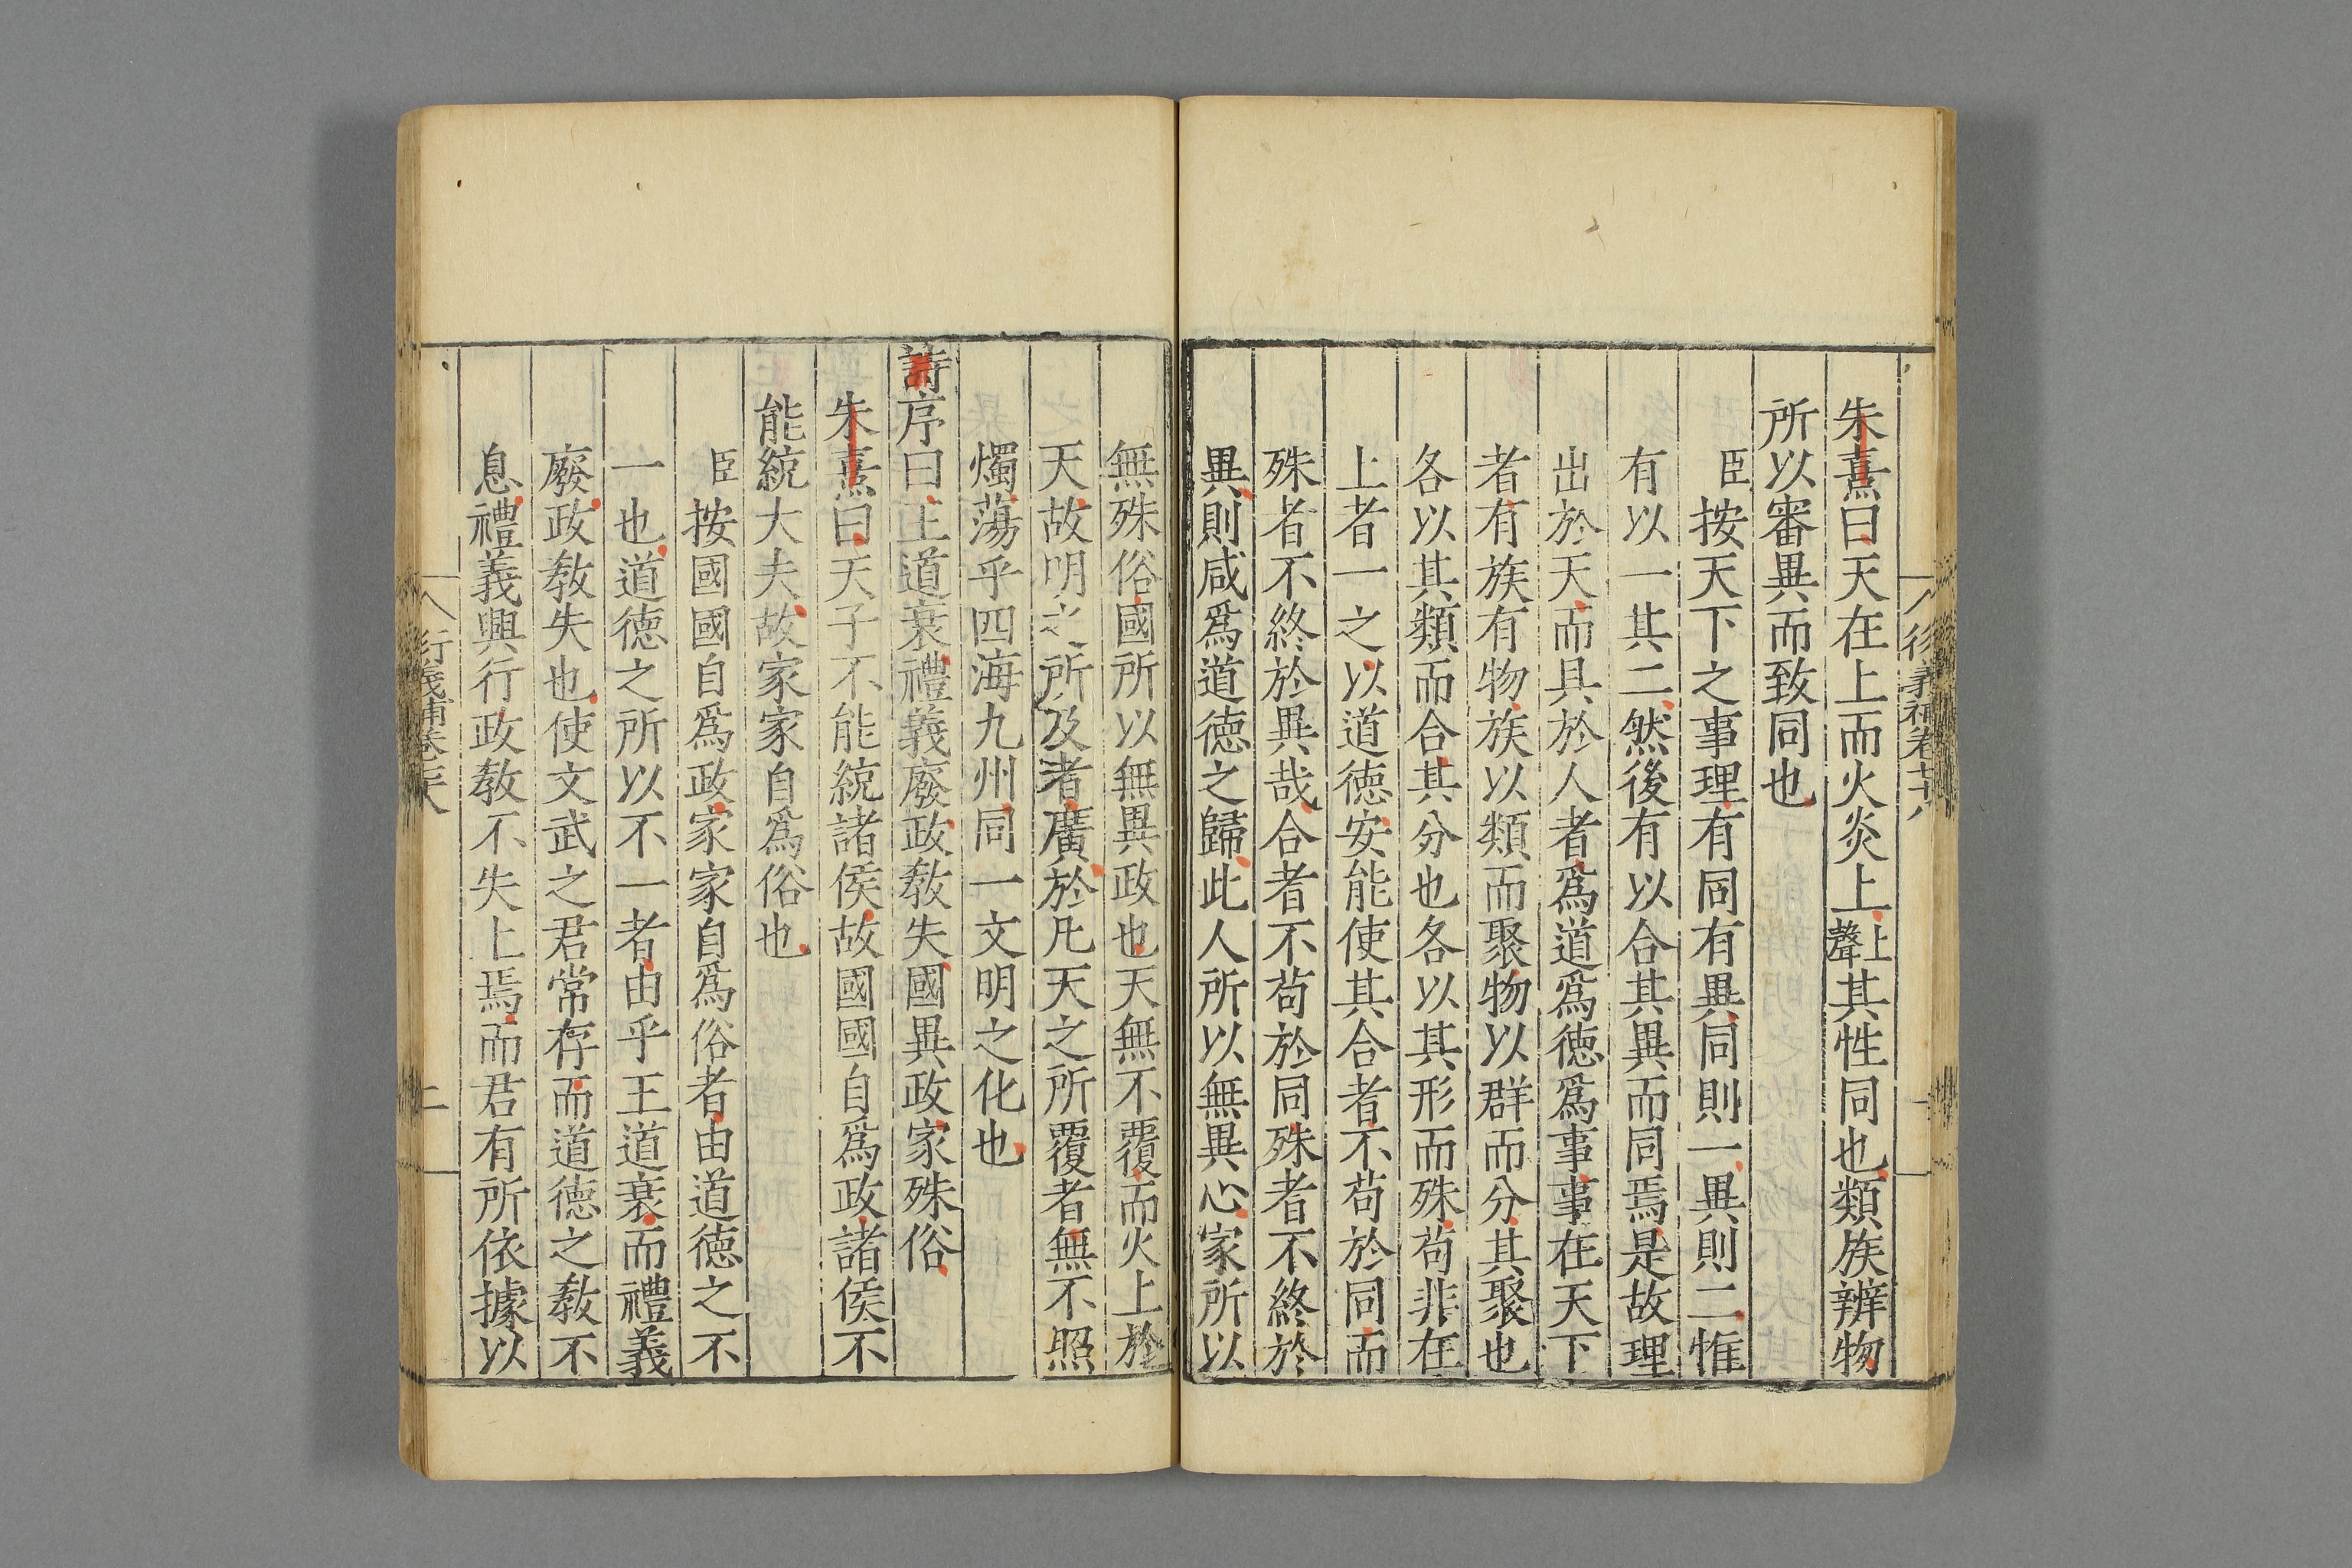 朱熹曰天在上而火炎上上聲其性同也類族辨物
所以審異而致同也
臣按天下之事理有同有異同則一異則二惟
有以一其二然後有以合其異而同焉是故理
出於天而具於人者爲道爲德爲事事在天下
者有族有物族以類而聚物以群而分其聚也
各以其類而合其分也各以其形而殊苟非在
上者一之以道德安能使其合者不苟於同而
殊者不終於異哉合者不苟於同殊者不終於
異則咸爲道德之歸此人所以無異心家所以
無殊俗國所以無異政也天無不覆而火上於
天故明之所及者廣於凡天之所覆者無不照
燭蕩乎四海九州同一文明之化也
詩序曰王道衰禮義廢政教失國異政家殊俗
朱熹曰天子不能統諸侯故國國自爲政諸侯不
能統大夫故家家自爲俗也
臣按國國自爲政家家自爲俗者由道德之不
一也道德之所以不一者由乎王道衰而禮義
廢政教失也使文武之君常存而道德之教不
息禮義興行政教不失上焉而君有所依據以